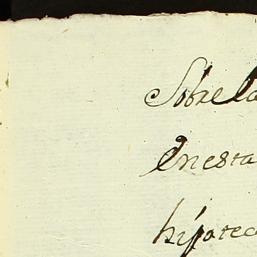 Sobre la
en esta
hipotec